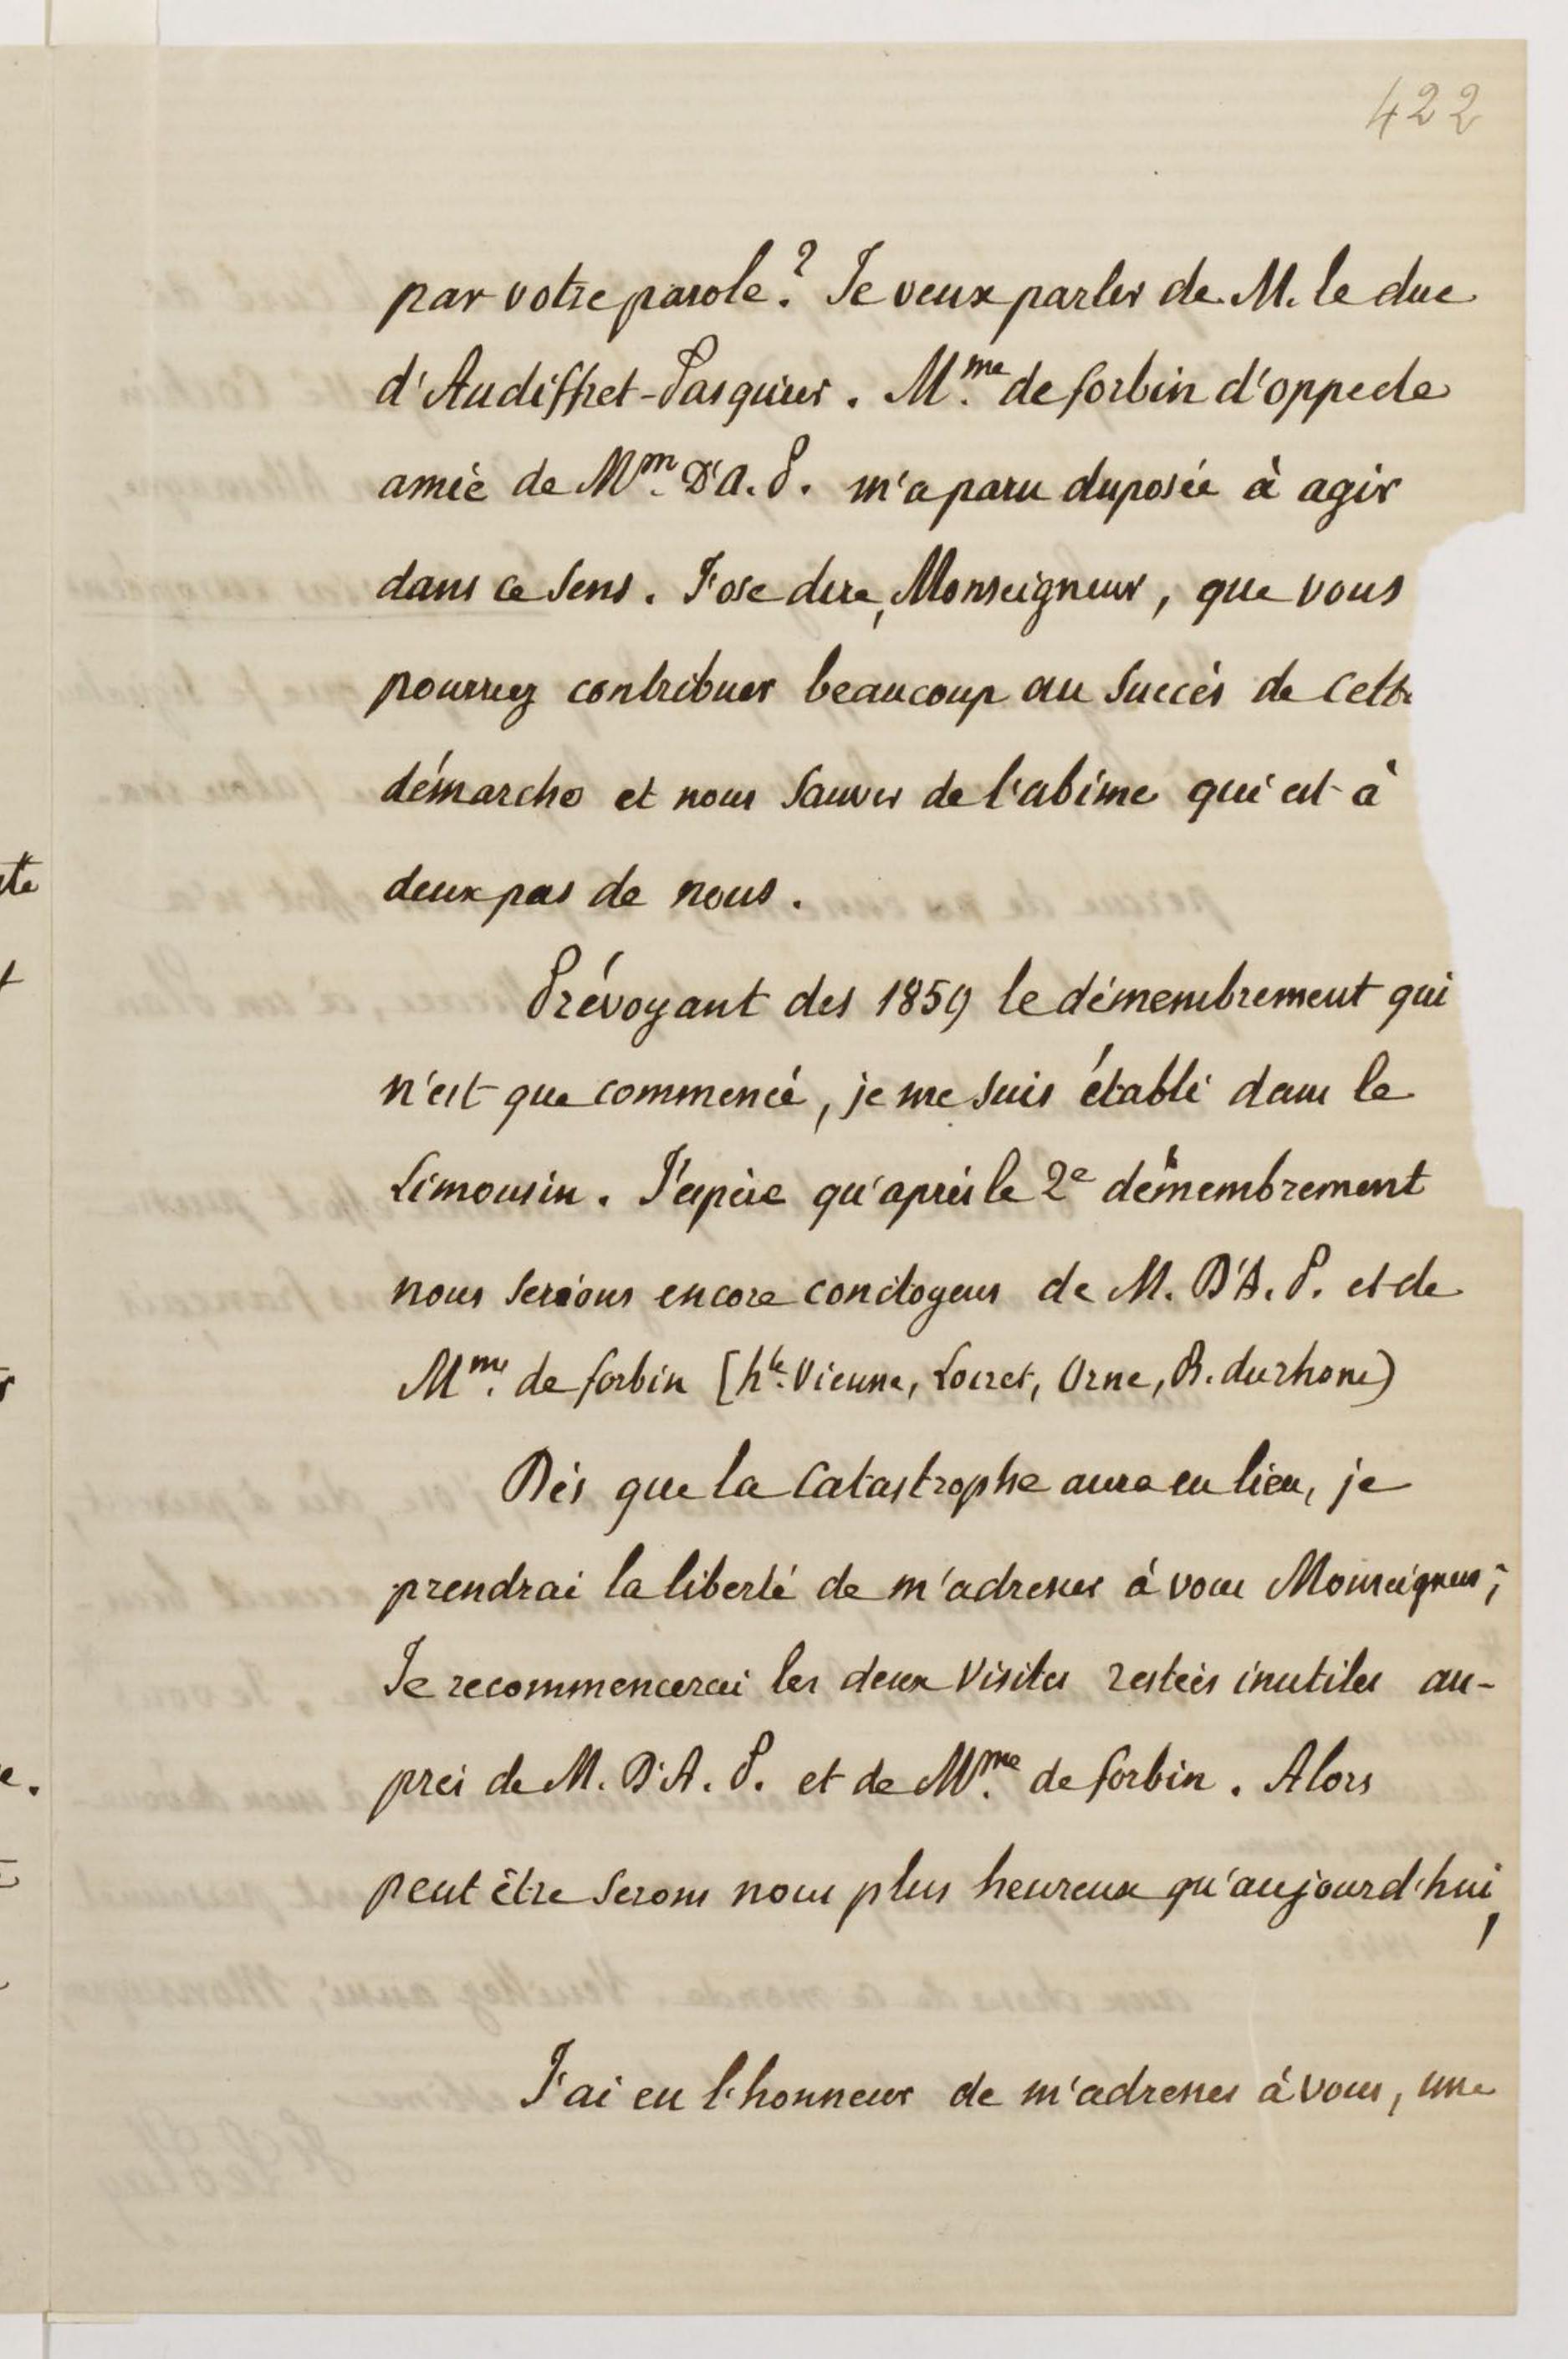 422
par votre parole? Je veux parler de M. le duc
d'Audiffret-Pasquier. Mme. de forbin d'oppede
amie de Mm. D'A. P. m'a paru disposée à agir
dans ce sens. J'ose dire, Monseigneur, que vous
pourrez contribuer beaucoup au succès de cette
démarche et nous sauver de l'abime qui est à
deux pas de nous.
Prévoyant des 1859 le démembrement qui
n'est que commencé, je me suis établi dans le
Limousin. J'espère qu'après le 2e démembrement
nous serions encore concitoyens de M. D'A. P. et de
Mme. de forbin [hte. Vienne, Loiret, Orne, B. du rhone)
Dès que la catastrophe aura eu lieu, je
prendrai la liberté de m'adresser à vous Monseigneur;
Je recommencerai les deux visites restées inutiles au-
près de M. D'A. P. et de Mme. de forbin. Alors
peut être serons nous plus heureux qu'aujourd'hui,
J'ai eu l'honneur de m'adresser à vous, une